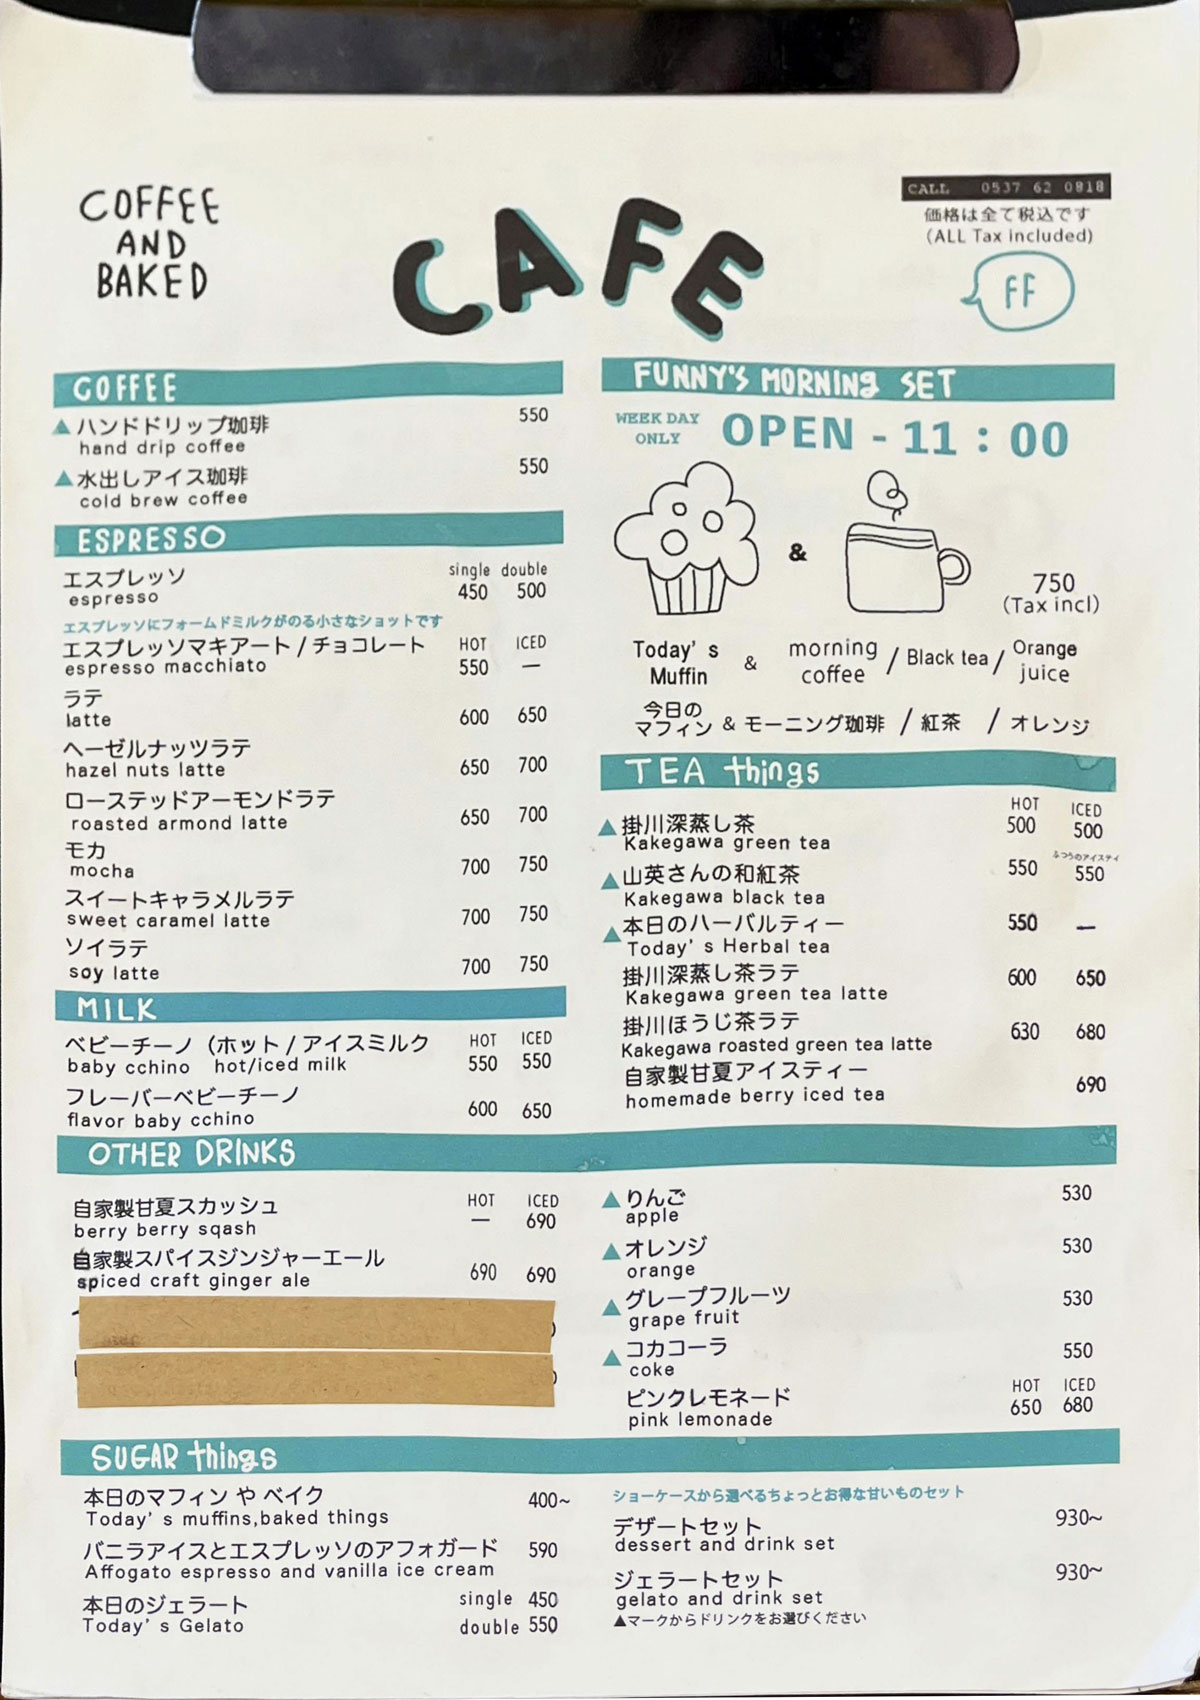 COFFEE
AND
BAKED
CAFE
CALL 0537 62 0818
価格は全て税込です
(ALL Tax included)
FF
COFFEE
▲ハンドドリップ珈琲 550
hand drip coffee
▲水出しアイス珈琲 550
cold brew coffee
ESPRESSO
single double
エスプレッソ 450 500
espresso
エスプレッソにフォームドミルクがのる小さなショットです
HOT ICED
エスプレッソマキアート / チョコレート
espresso macchiato 550 —
ラテ
latte 600 650
ヘーゼルナッツラテ
hazel nuts latte 650 700
ローステッドアーモンドラテ
roasted armond latte 650 700
モカ
mocha 700 750
スイートキャラメルラテ
sweet caramel latte 700 750
ソイラテ
soy latte 700 750
MILK
HOT ICED
ベビーチーノ (ホット / アイスミルク
baby cchino hot/iced milk 550 550
フレーバーベビーチーノ
flavor baby cchino 600 650
FUNNY'S MORNING SET
WEEK DAY
ONLY
OPEN - 11 : 00
&
750
(Tax incl)
Today's Muffin & morning coffee / Black tea / Orange juice
今日のマフィン & モーニング珈琲 / 紅茶 / オレンジ
TEA things
HOT ICED
▲掛川深蒸し茶 500 500
Kakegawa green tea
ふつうのアイスティ
▲山英さんの和紅茶 550 550
Kakegawa black tea
▲本日のハーバルティー 550 —
Today's Herbal tea
掛川深蒸し茶ラテ 600 650
Kakegawa green tea latte
掛川ほうじ茶ラテ 630 680
Kakegawa roasted green tea latte
自家製甘夏アイスティー 690
homemade berry iced tea
OTHER DRINKS
HOT ICED
自家製甘夏スカッシュ — 690
berry berry sqash
自家製スパイスジンジャーエール
spiced craft ginger ale 690 690
▲りんご 530
apple
▲オレンジ 530
orange
▲グレープフルーツ 530
grape fruit
▲コカコーラ 550
coke
HOT ICED
ピンクレモネード 650 680
pink lemonade
SUGAR things
本日のマフィン や ベイク 400~
Today's muffins,baked things
バニラアイスとエスプレッソのアフォガード 590
Affogato espresso and vanilla ice cream
本日のジェラート single 450
Today's Gelato double 550
ショーケースから選べるちょっとお得な甘いものセット
デザートセット 930~
dessert and drink set
ジェラートセット 930~
gelato and drink set
▲マークからドリンクをお選びください